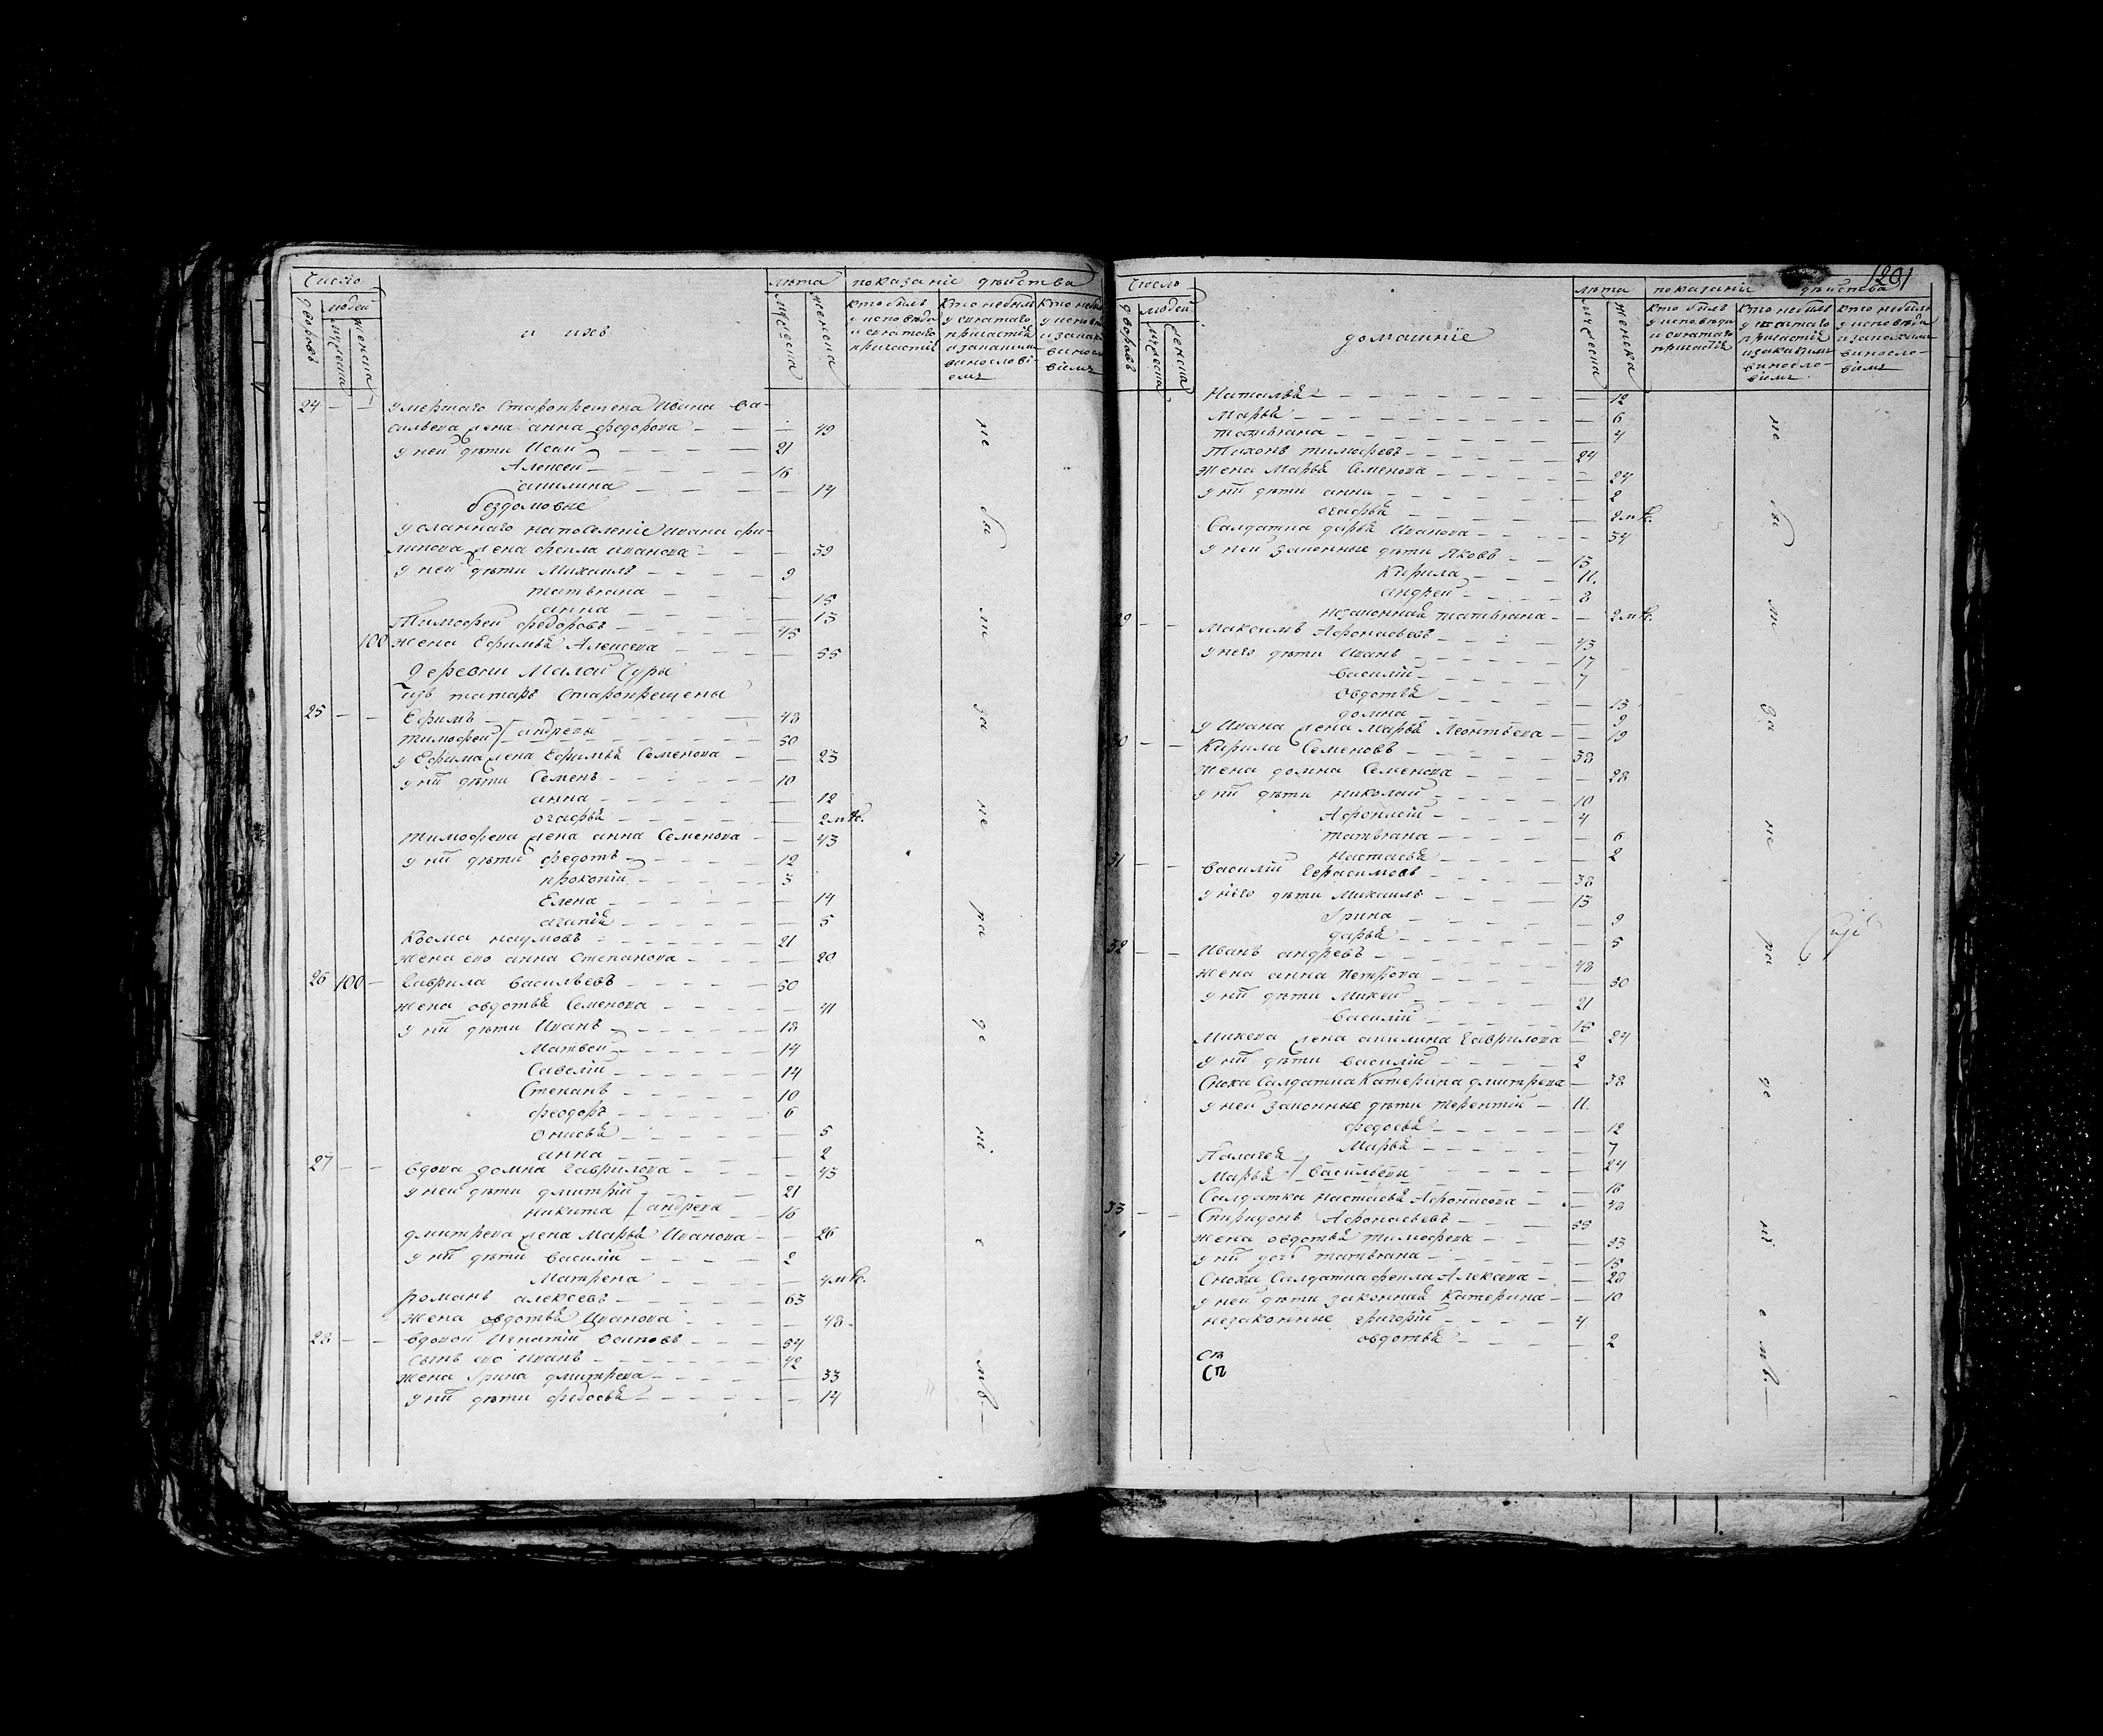 Число
дворовъ
людей
мужеска
женска
и ихъ
лѣта
мужеска
женска
показаніе дѣйства
кто былъ у исповѣди и святаго причастія
кто не былъ у святаго причастія и за какимъ винословіемъ
24 — — умершаго Старокрещена Ивана Ва-
сильева жена анна федорова — 49
у ней дѣти Исаи 21
Алексеи 16
акилина — 14
бездомовые
усланнаго на поселеніе ивана фи-
липова жена фекла иванова — 39
у ней дѣти Михаилъ 9
татьяна — 15
анна — 13
Тимофеи федоровъ 45
100 жена Ефимья Алексева — 55
Деревни Малой Чуры
изъ татаръ Старокрещены
25 — — Ефимъ 48
тимофеи / андревы 50
у Ефима жена Ефимья Семенова — 23
у нихъ дѣти Семенъ 10
анна — 12
огафья — 2 мѣс.
тимофева жена анна Семенова — 43
у нихъ дѣти федотъ 12
прокопій 3
Елена — 14
агапія — 5
Козма наумовъ 21
жена его анна Степанова — 20
26 100 — Гаврила васильевъ 50
жена овдотья Семенова — 41
у нихъ дѣти Иванъ 18
Матвеи 14
Савелій 14
Степанъ 10
феодоръ 6
Онисья — 5
анна — 2
27 — — вдова домна гаврилова — 45
у ней дѣти дмитрій 21
никита / андрева 16
дмитрева жена Марья Иванова — 26
у нихъ дѣти василій 2
Матрена — 4 мѣс.
романъ алексевъ 63
жена овдотья Иванова — 48
28 — — вдовой Игнатій Осиповъ 54
сынъ его иванъ 42
жена Ірина дмитрева — 33
у нихъ дѣти федосья — 14
не бы ли за не ра де ні е мъ.
1201
Число
дворовъ
людей
мужеска
женска
домашніе
лѣта
мужеска
женска
показаніе дѣйства
кто былъ у исповѣди и святаго причастія
кто не былъ у святаго причастія и за какимъ винословіемъ
кто не былъ у исповѣди и за какимъ винословіемъ
Наталья — 12
Марья — 6
татьяна — 4
Тихонъ тимофевъ 24
жена Марья Семенова — 24
у нихъ дѣти анна — 2
огафья — 2 мѣс.
Салдатка дарья Иванова — 34
у ней законные дѣти Яковъ 13
Кирила 11.
андреи 8
незаконная татьяна — 2 мѣс.
29 — — Максимъ Афонасьевъ 43
у него дѣти Иванъ 17
василій 7
Овдотья — 13
домна — 9
у Ивана жена Марья Леонтьева — 19
30 — — Кирила Семеновъ 38
жена домна Семенова — 28
у нихъ дѣти николаи 10
Афонасій 4
татьяна — 6
настасья — 2
31 — — василій Герасимовъ 38
у него дѣти Михаилъ 13
Ірина — 9
дарья — 5
32 — — Иванъ андревъ 48
жена анна петрова — 50
у нихъ дѣти Микеи 21
василій 15
Микева жена акилина Гаврилова — 24
у нихъ дѣти василій 2
Сноха Салдатка Катерина дмитрева — 38
у ней законные дѣти терентій 11.
федосья — 12
Марья — 7
Палагея — 24
Марья / васильевы — 16
Салдатка настасья Афонасова — 48
33 — — Спиридонъ Афонасьевъ 55
жена овдотья тимофева — 53
у нихъ дочь татьяна — 15
Сноха Салдатка фекла Алексева — 28
у ней дѣти законная Катерина — 10
незаконные григорій 4
овдотья — 2
Съ
Сп
не бы ли за не ра де ні е мъ.